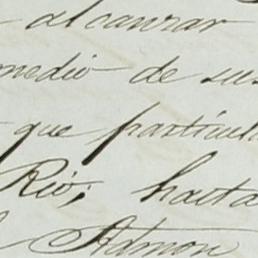 alcanzar
medio de sus
que particul
Rio; hasta
Admon